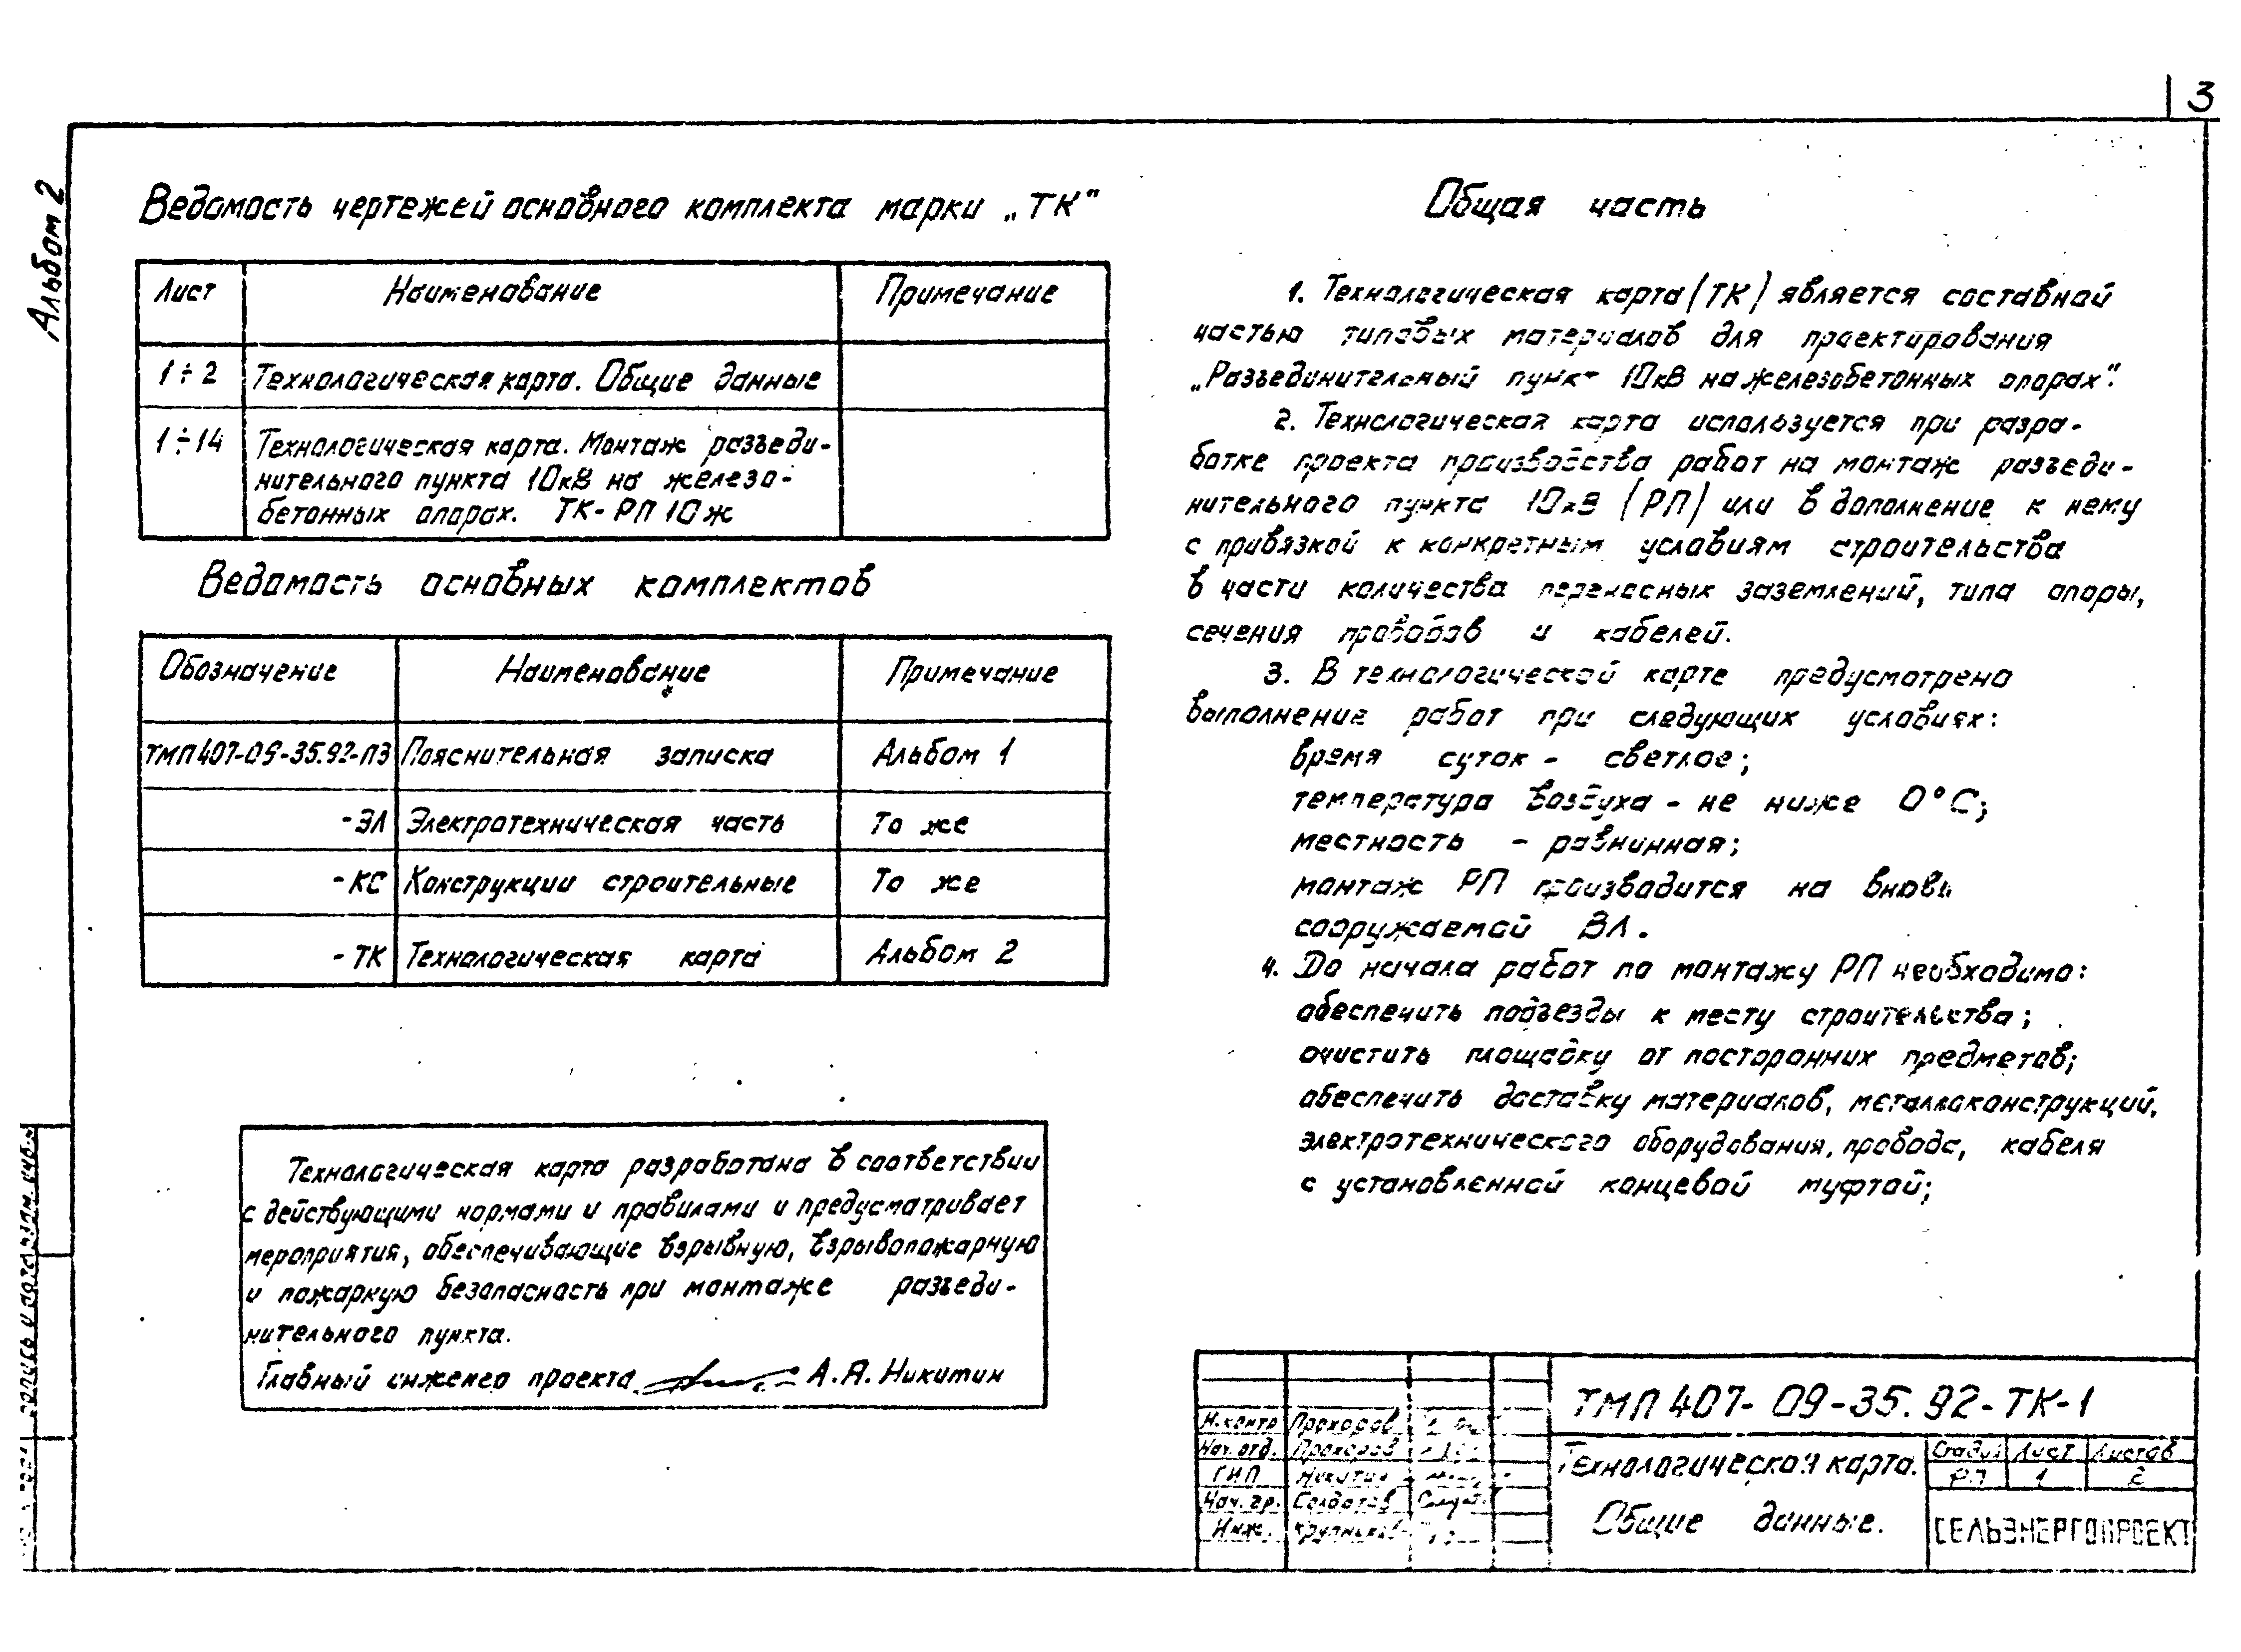 3
Альбом 2
Ведомость чертежей основного комплекта марки „ТК"
Лист Наименование Примечание
1÷2 Технологическая карта. Общие данные
1÷14 Технологическая карта. Монтаж разъеди-
нительного пункта 10кВ на железо-
бетонных опорах. ТК-РП 10ж
Ведомость основных комплектов
Обозначение Наименование Примечание
ТМП 407-09-35.92-ПЗ Пояснительная записка Альбом 1
-ЭЛ Электротехническая часть То же
-КС Конструкции строительные То же
-ТК Технологическая карта Альбом 2
Технологическая карта разработана в соответствии
с действующими нормами и правилами и предусматривает
мероприятия, обеспечивающие взрывную, взрывопожарную
и пожарную безопасность при монтаже разъеди-
нительного пункта.
Главный инженер проекта А.А. Никитин
Общая часть
1. Технологическая карта (ТК) является составной
частью типовых материалов для проектирования
„Разъединительный пункт 10кВ на железобетонных опорах".
2. Технологическая карта используется при разра-
ботке проекта производства работ на монтаж разъеди-
нительного пункта 10кВ (РП) или в дополнение к нему
с привязкой к конкретным условиям строительства
в части количества переносных заземлений, типа опоры,
сечения проводов и кабелей.
3. В технологической карте предусмотрено
выполнение работ при следующих условиях:
время суток - светлое;
температура воздуха - не ниже 0°С;
местность - равнинная;
монтаж РП производится на вновь
сооружаемой ВЛ.
4. До начала работ по монтажу РП необходимо:
обеспечить подъезды к месту строительства;
очистить площадку от посторонних предметов;
обеспечить доставку материалов, металлоконструкций,
электротехнического оборудования, провода, кабеля
с установленной концевой муфтой;
ТМП 407-09-35.92-ТК-1
Н.контр Прохоров
Нач.отд. Прохоров
ГИП Никитин
Нач. гр. Солдатов
Инж.
Технологическая карта.
Общие данные.
Стадия Лист Листов
РП 1 2
СЕЛЬЭНЕРГОПРОЕКТ